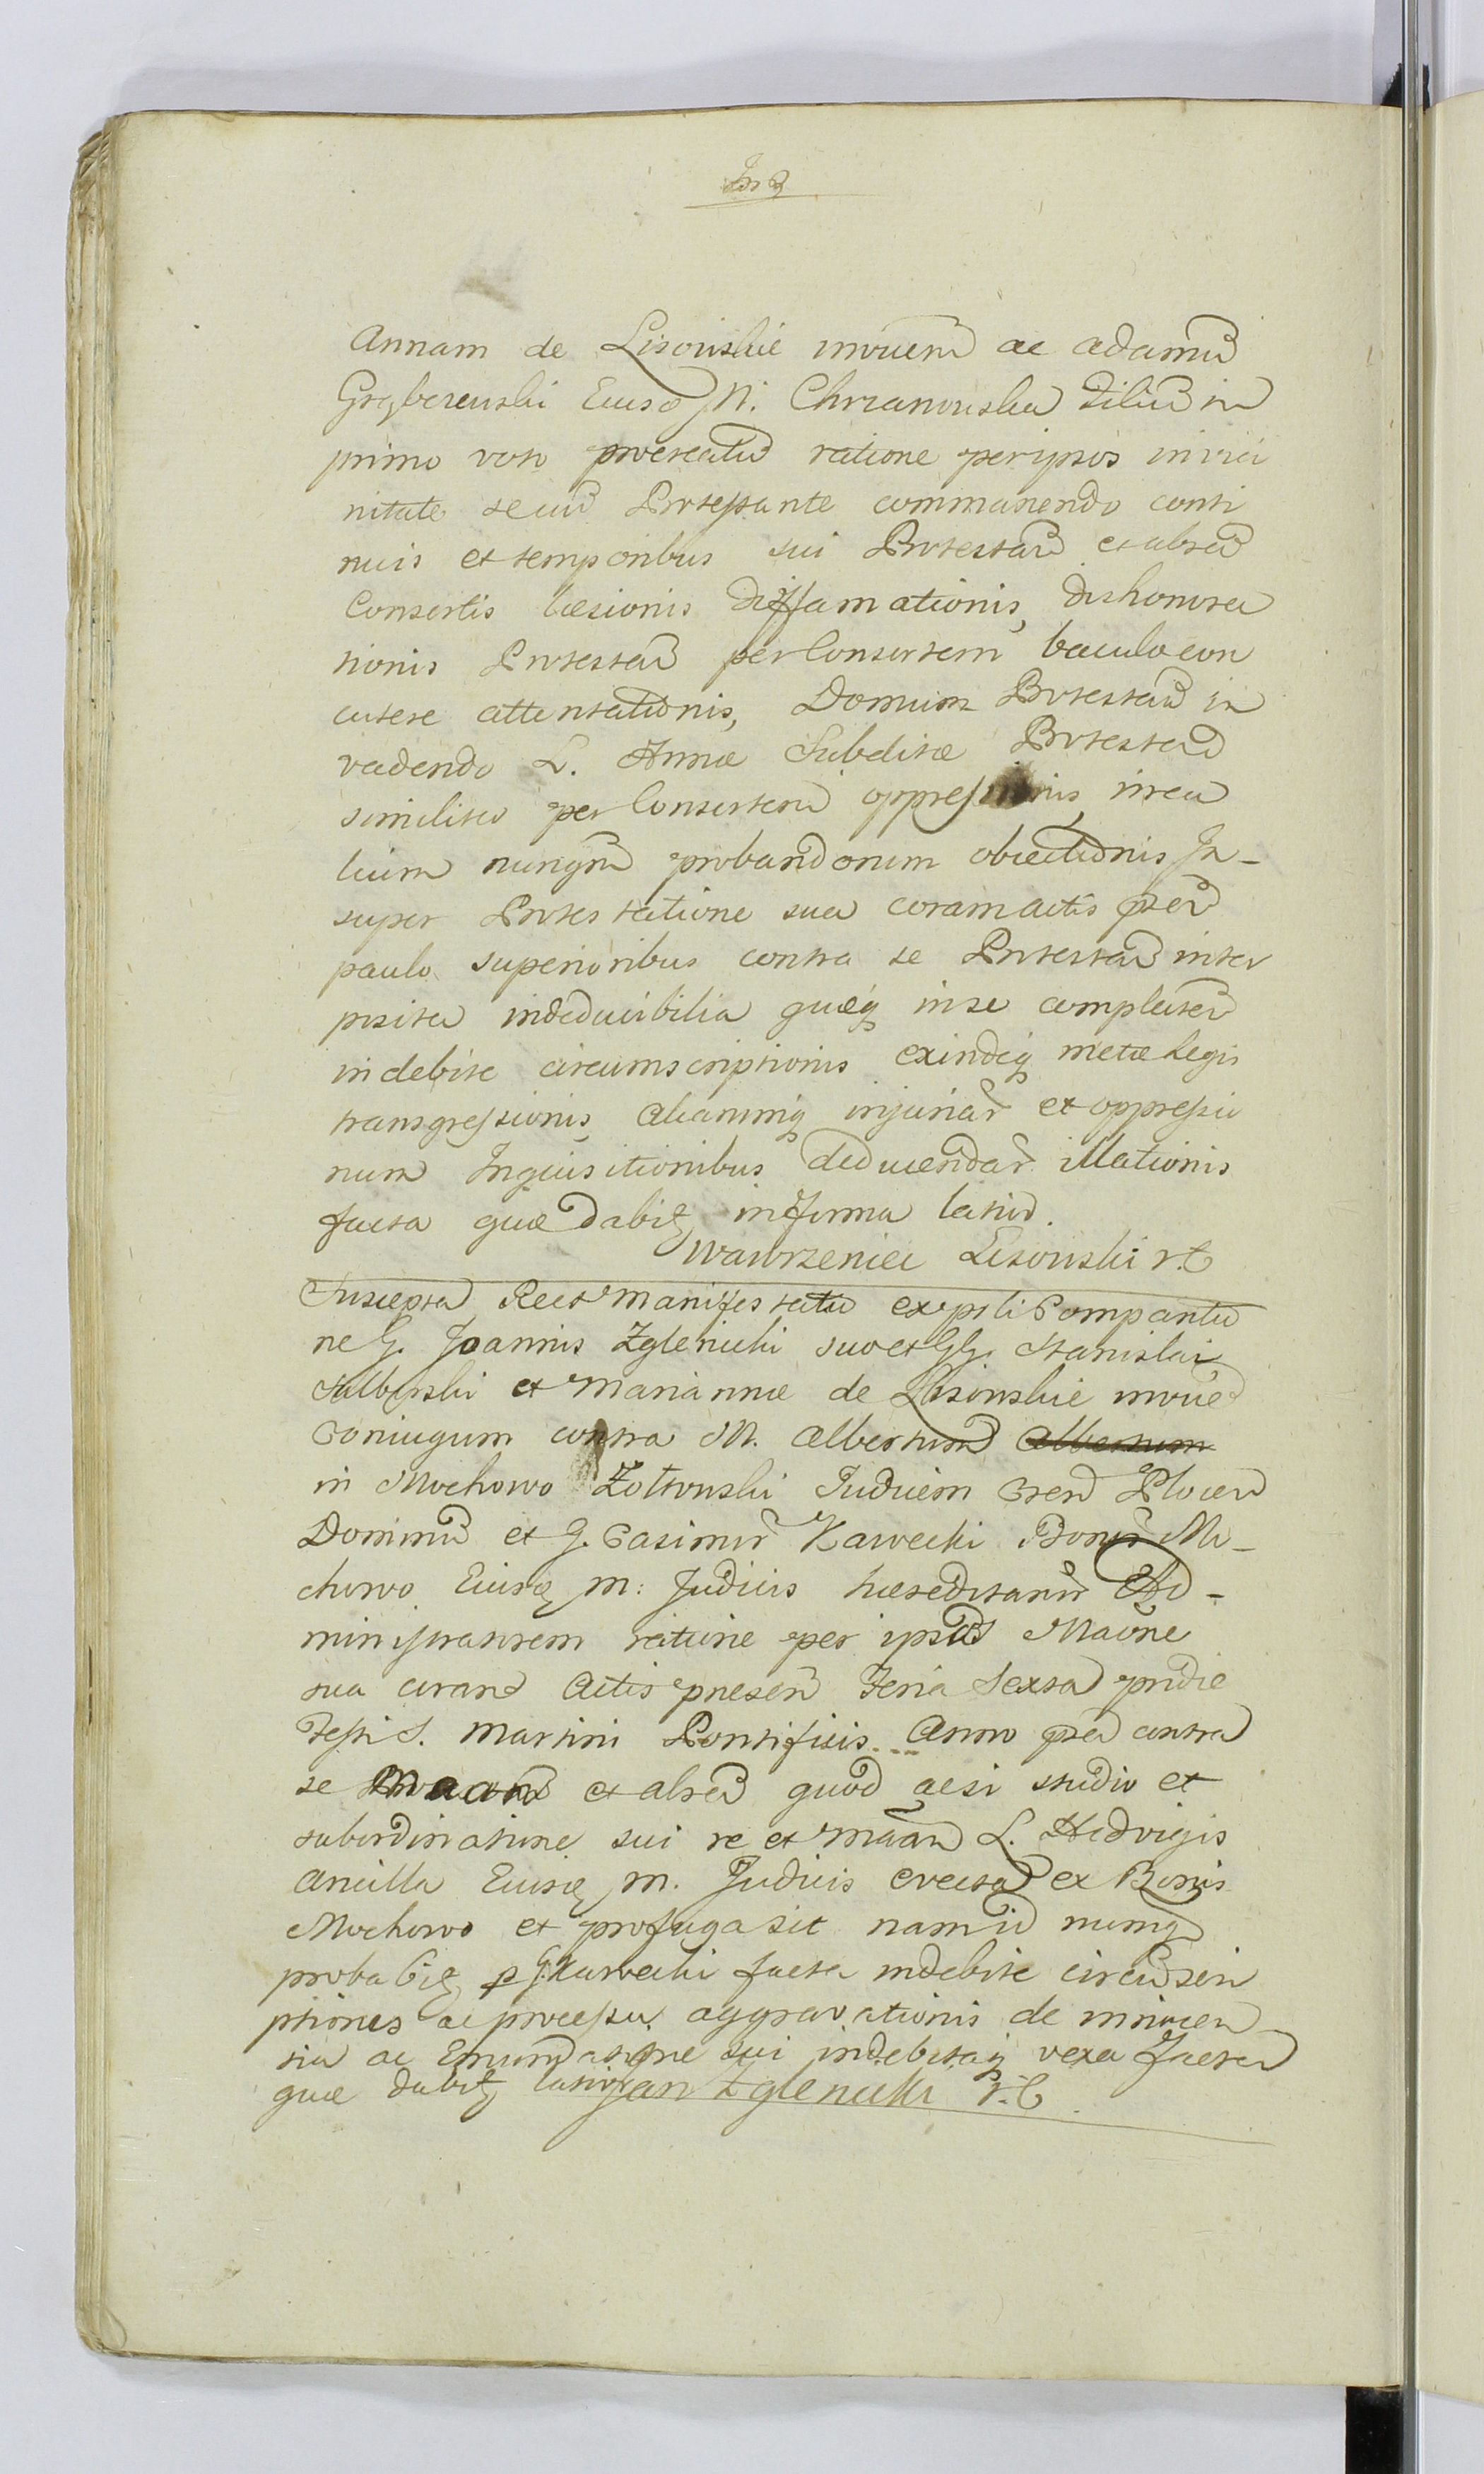 Annam de Lisowskie
Grzybczewski Eiusq M. Chrzanowska Filiũ in
primo voto procreatũ ratione per ipsos in vici
nitate secũ Protestante commanendo conti
nuis et temporibus sui Protestañ et absẽ
Consortis læsionis diffamationis, dishonora
tionis Protestañ per Consortem baculo con
cutere attentationis, Domum Protestañ in
vadendo L. Annæ Subditæ Protestañ
similiter per Consortem oppressionis, in rea
lium nunqm̃ probandorum obiectionis In-
super Protestatione sua coram actis pñ
paulo superioribus contra se Protestañ inter
posita indeducibilia quæq in se complecteñ
indebite circumscriptionis exindeq metæ Legis
transgressionis, aliarumq injuriar̃ et oppressio
num Inquisitionibus deducendar̃ illationis
facta quæ dabit, in forma latior.
Wawrzeniec Lisowski r. C
Suscepta Reet Manifestatio ex psli Compantio
ne G. Joannis Zglenicki suo et GG. Stanislai
et Mariannæ de Lisowskie
Coniugum contra M. Albertum Albertum
in Mochowo Zoltowski Judicem Plocen
Dominũ et G. Casimir̃ Kawecki Bonor̃ Mo-
chowo Eiusq M: Judicis hæreditarior̃ Ad-
ministratorem ratione per ipsos Maõne
sua coram Actis presen̄ Feria Sexta pridie
Festi S. Martini Pontificis Anno contra
se et absẽ quod acsi studio et
subordinatione sui re et L. Hedvigis
ancilla Eiusq M. Judicis evecta ex Bonis
Mochowo et profuga sit nam id nunq
probabit, p G. Kawecki facta indebite circũscri
ptiones ac processu aggravationis de innocen
tia ac Emundatione sui indebitaq vexa facta
quæ dabit, latior Jan Zglenicki r. C.